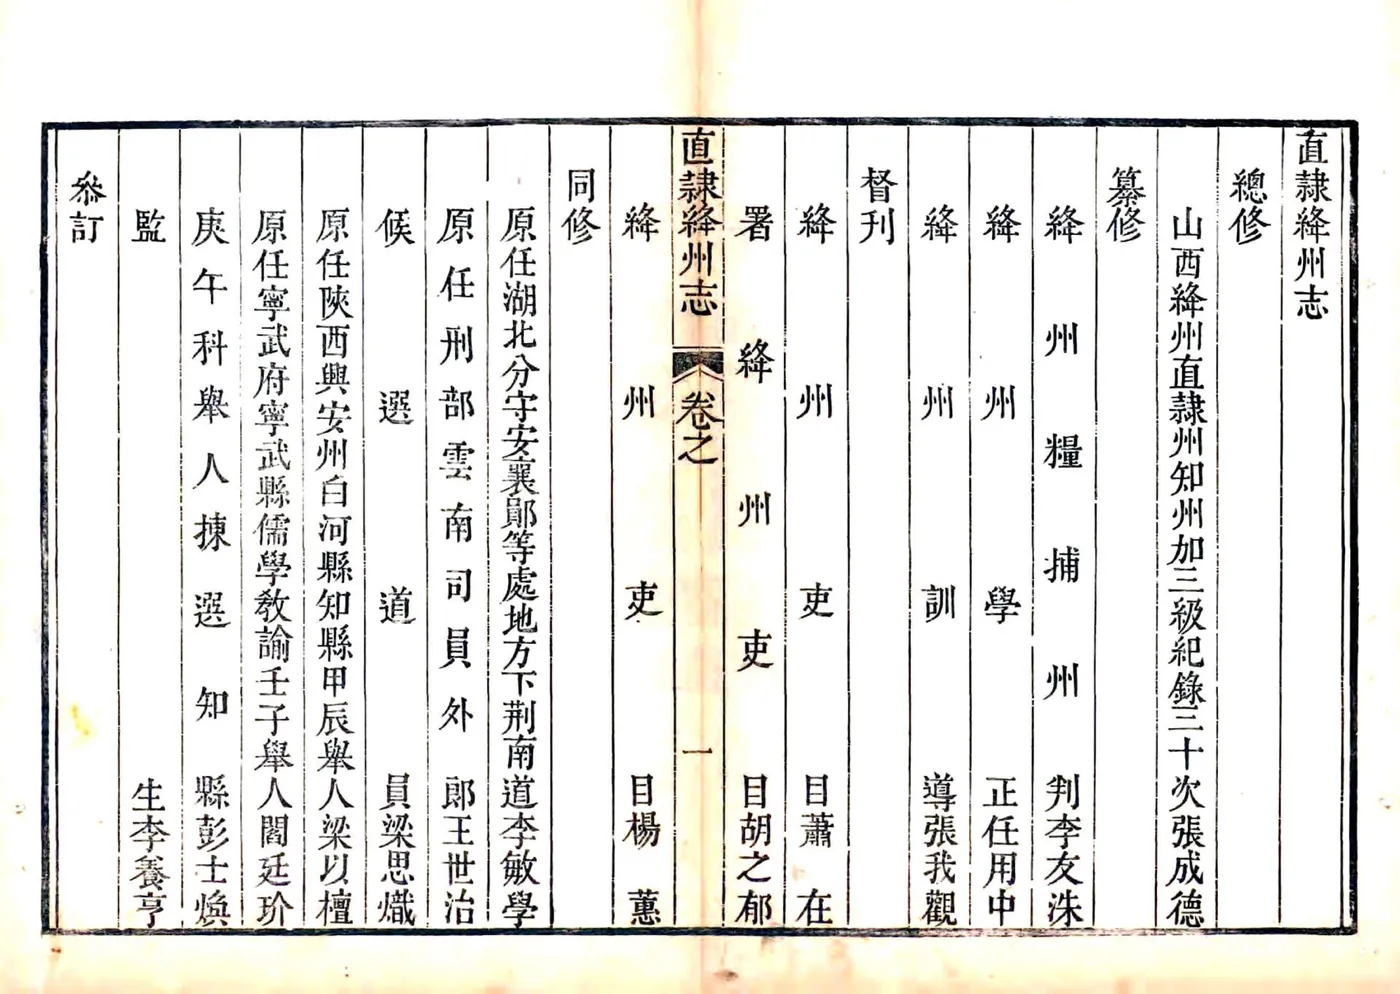 直隸絳州志
總修
山西絳州直隸州知州加三級紀錄三十次張成德
纂修
絳州糧捕州判李友洙
絳州學正任用中
絳州訓導張我觀
督刊
絳州吏目蕭在
署絳州吏目胡之郁
直隸絳州志 卷之 一
絳州吏目楊蕙
同修
原任湖北分守安襄鄖等處地方下荆南道李敏學
原任刑部雲南司員外郎王世治
候選道員梁思熾
原任陝西興安州白河縣知縣甲辰舉人梁以檀
原任寧武府寧武縣儒學教諭壬子舉人閻廷玠
庚午科舉人揀選知縣彭士煥
監生李養亨
叅訂